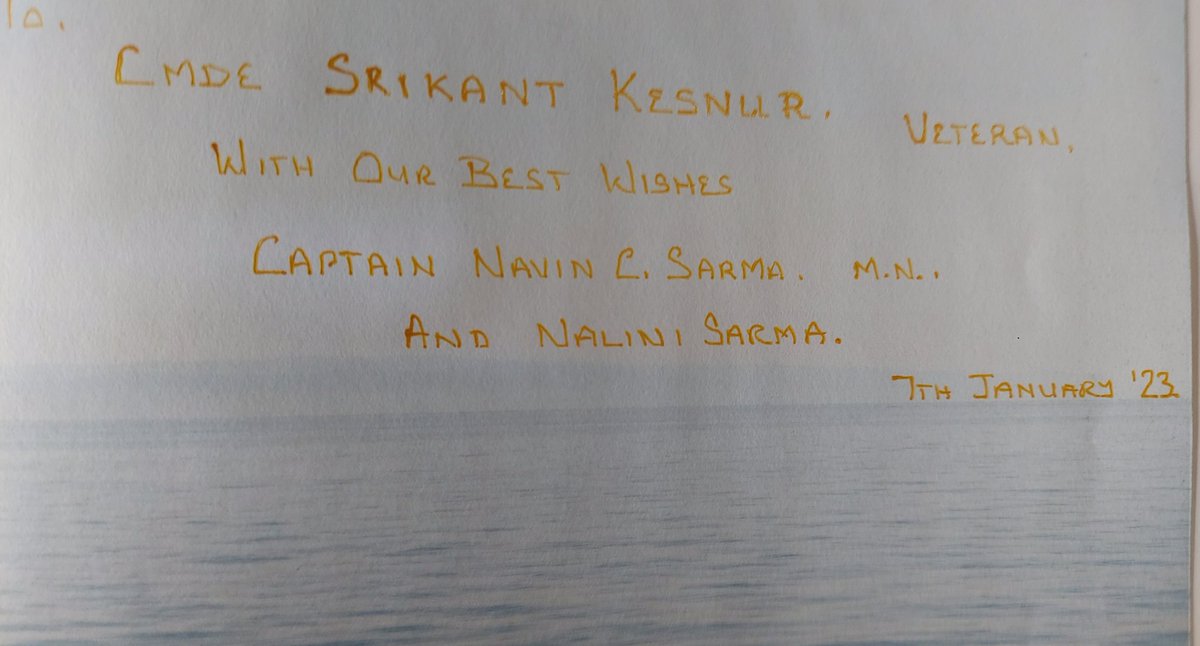 To.
CMDE SRIKANT KESNUR. VETERAN,
WITH OUR BEST WISHES
CAPTAIN NAVIN C. SARMA. M.N..
AND NALINI SARMA.
7TH JANUARY '23